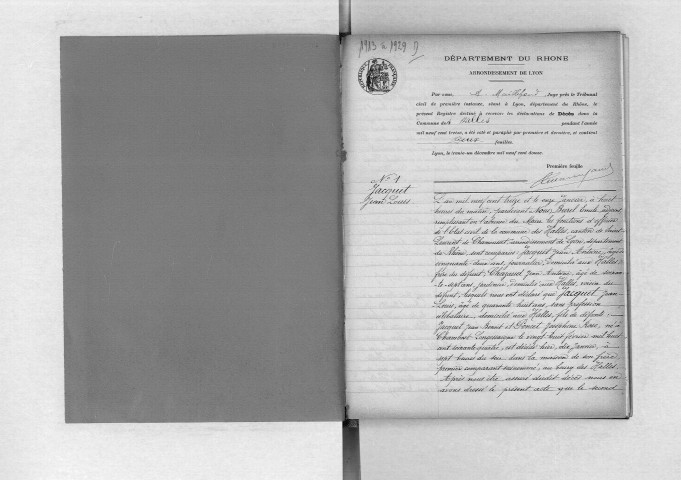 1913 à 1929 D
DÉPARTEMENT DU RHONE
ARRONDISSEMENT DE LYON
Par nous, Juge près le Tribunal
civil de première instance, séant à Lyon, département du Rhône, le
présent Registre destiné à recevoir les déclarations de Décès dans la
Commune des Halles pendant l'année
mil neuf cent treize, a été coté et paraphé par première et dernière, et contient
feuilles.
Lyon, le trente-un décembre mil neuf cent douze.
Première feuille
No 1
Jacquet
Jean Louis
L'an mil neuf cent treize et le onze Janvier, à huit
heures du matin, pardevant Nous, Emile adjoint
remplissant en l'absence du Maire les fonctions d'officier
de l'état civil de la commune des Halles, canton de Saint
Laurent de Chamousset, arrondissement de Lyon, département
du Rhône, sont comparus Jacquet Jean Antoine, âgé de
cinquante deux ans, journalier, domicilié aux Halles,
frère du défunt; Chazaud Jean Antoine, âgé de soixan-
te-sept ans, jardinier, domicilié aux Halles, voisin du
défunt, lesquels nous ont déclaré que Jacquet Jean
Louis, âgé de quarante huit ans, sans profession
célibataire, domicilié aux Halles, fils de défunts
Jacquet Jean Benoit et Joséphine Rose, né à
Chambost Longessaigne le vingt huit février mil huit
cent soixante quatre, est décédé hier, dix janvier, à
sept heures du soir dans la maison de son frère
premier comparant susnommé, au bourg des Halles.
Après nous être assuré dudit décès nous en
avons dressé le présent acte que le second